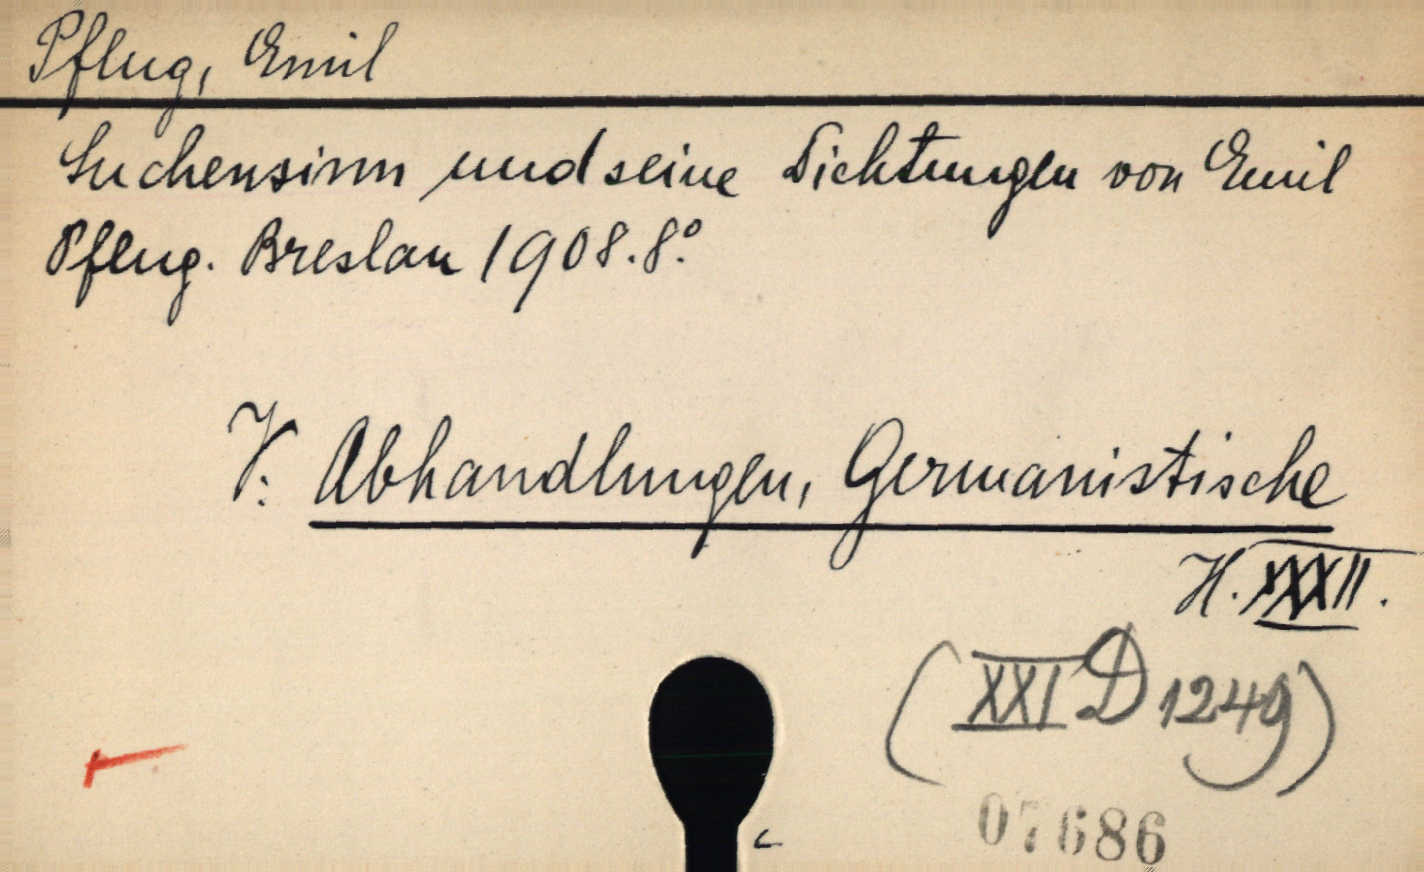 Pflug, Emil
Suchensinn und seine Dichtungen von Emil
Pflug. Breslau 1908. 8°.
V: Abhandlungen, Germanistische
H. XXXII.
(XXI D 1249)
07686